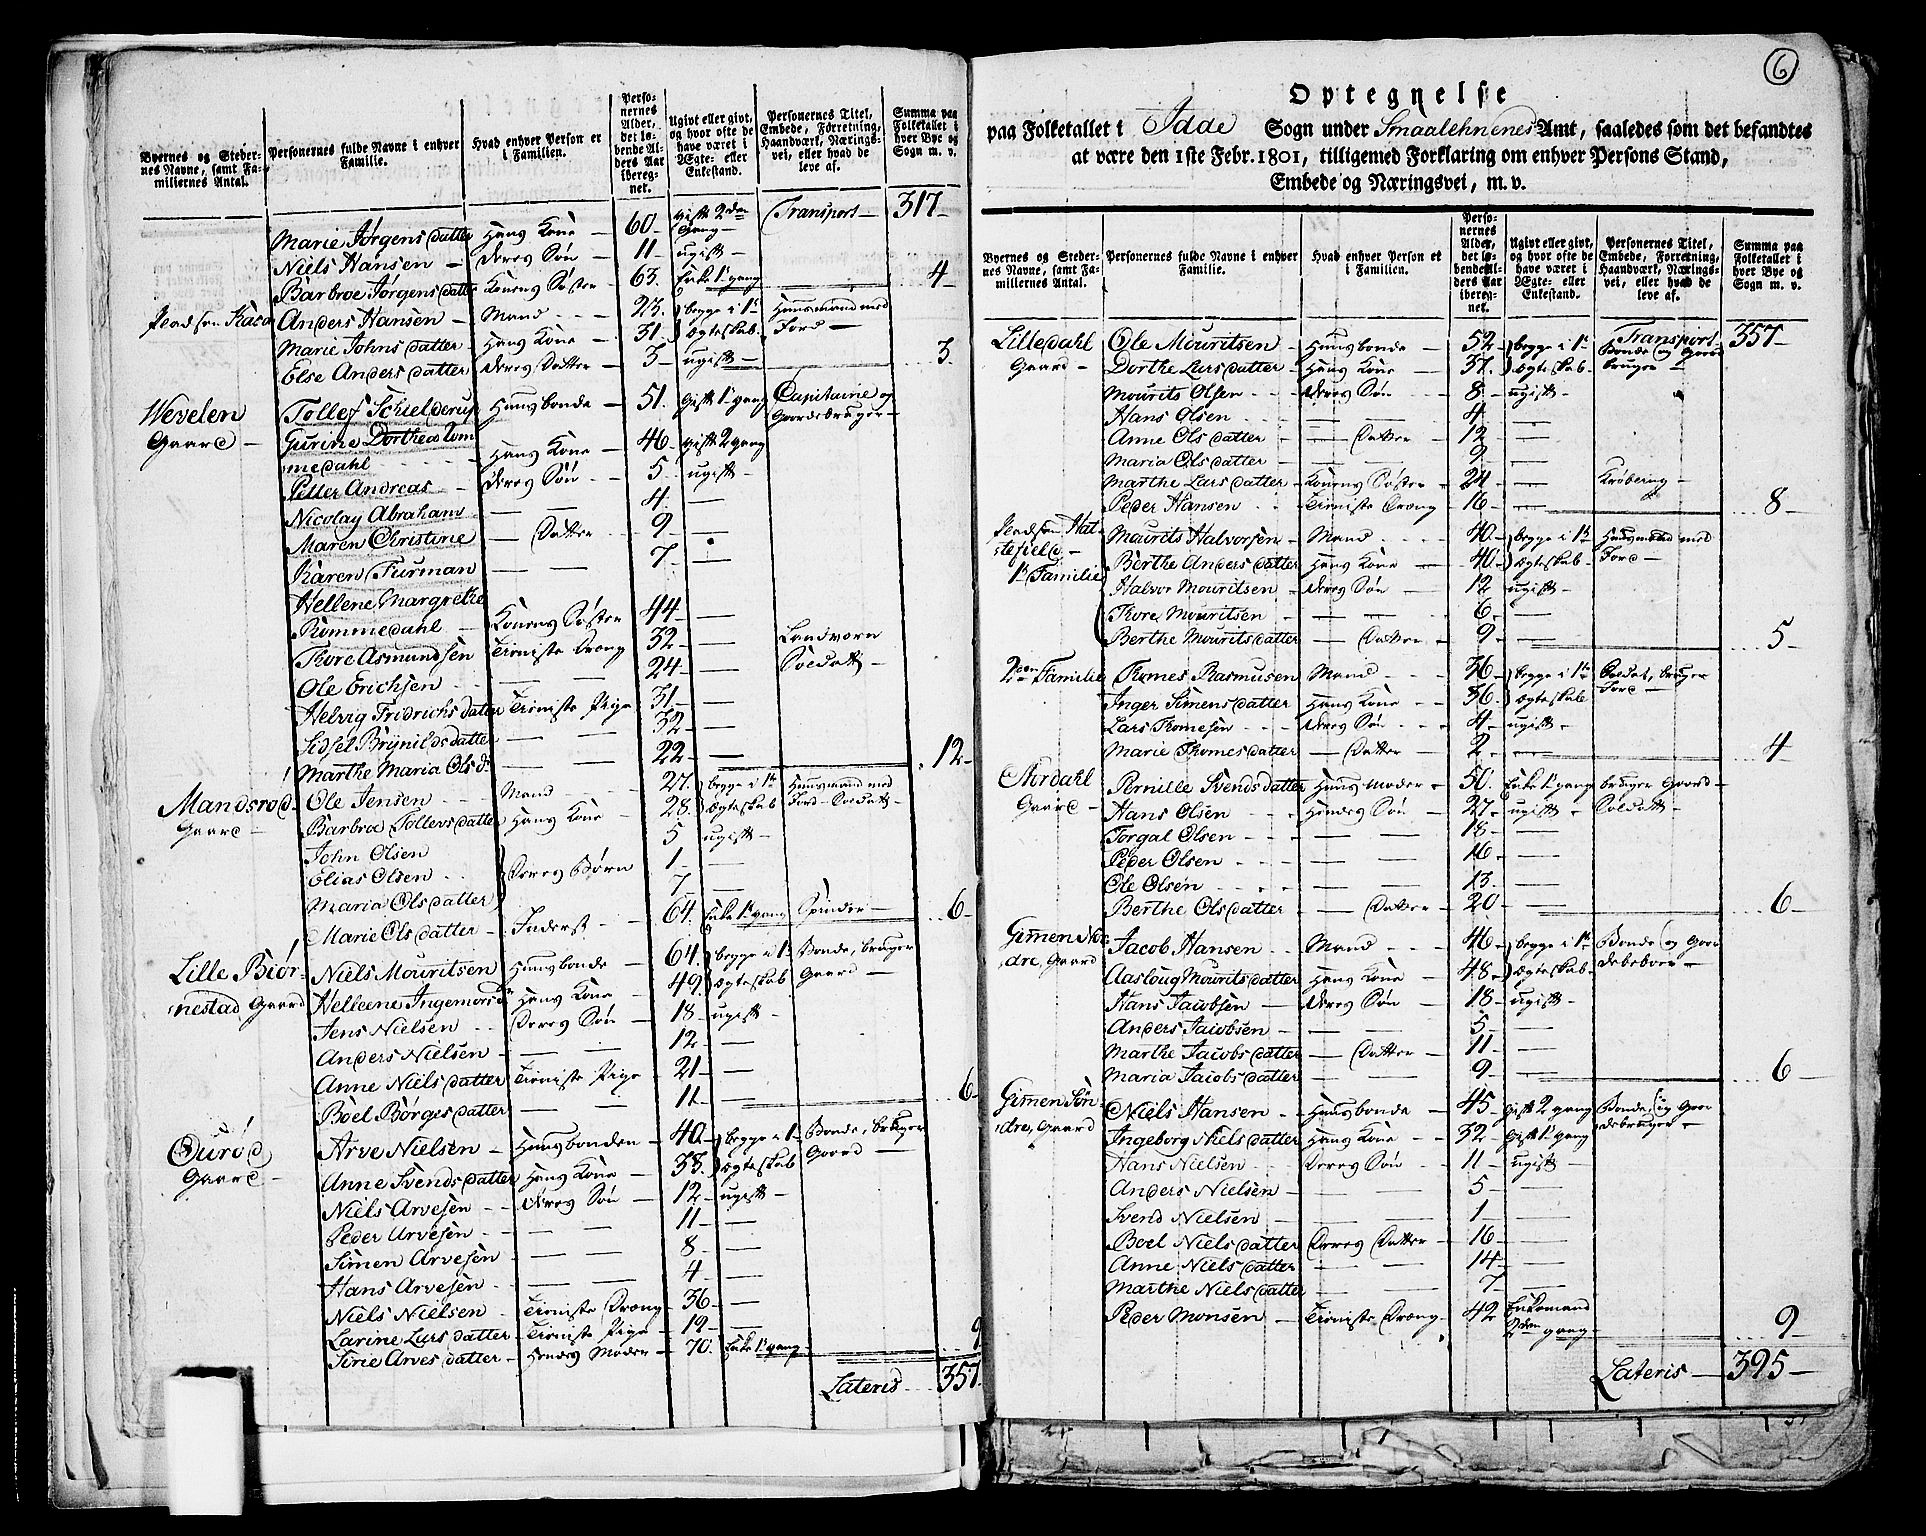 Byernes og Stedernes Navne, samt Familiernes Antal.
Personernes fulde Navne i enhver Familie.
Hvad enhver Person er i Familien.
Personernes Alder, det løbende Alders Aar iberegnet.
Ugivt eller givt, og hvor ofte de have været i Ægte- eller Enkestand.
Personernes Titel, Embede, Forretning, Haandværk, Næringsvei, eller hvad de leve af.
Summa paa Folketallet i hver Bye og Sogn m. v.
Transport — 317
Marie Jørgens datter Hans Kone — 60 gift 2den Gang
Niels Hansen — Deres Søn — 11 ugift
Barbroe Jørgens datter Konens Søster 63. Enke 1 gang 4
Anders Hansen — Mand 23. begge i 1te Huusmand med
Marie Johns datter Hans Kone — 31. Ægteskab. Jord —
Else Anders datter Deres Datter — 3 ugift — 3
Wevelen Tollef Schielderup Huusbonde — 51. gift 1 gang Capitaine og
Gaard — Gaardebruger
Gurine Dorthea Rommedahl Hans Kone — 46 gift 2 gang
Petter Andreas — Deres Søn 5 ugift
Nicolay Abraham — — 4 —
Maren Christine — Datter 9 —
Karen Furman — — 7 —
Hellene Margrethe
Rommedahl — Konens Søster 44 —
Thore Asmundsen Tieniste Dreng 32 — Landvorn
Ole Erichsen — — 24 — Soldat —
Helvig Fridrichs datter Tieniste Pige 31 —
Sidsel Brynilds datter — — 32 —
Marthe Maria Ols dr — — 22 — 12
Mandsrød Ole Jensen Mand 27. begge i 1te Huusmand med
Gaard — Barbroe Tollevs datter Hans Kone 28. Ægteskab Jord - Soldat
John Olsen 5 ugift
Elias Olsen Deres Børn 1 —
Maria Ols datter 7 —
Marie Ols datter — Inderst — 64. Enke 1 gang Spinder — 6
Lille Biør- Niels Mouritsen Huusbonde 64. begge i 1te Bonde, bruger
nestad Gaard Helleene Ingemors dr Hans Kone — 49. Ægteskab Gaard —
Jens Nielsen Deres Søn — 18 ugift
Anders Nielsen — — 12 —
Anne Niels datter Tieniste Pige 21 —
Boel Børges datter — — 11 — 6
Ourød Arve Nielsen — Huusbonden — 40 begge i 1te Bonde, bruger
Gaard — Anne Svends datter Hans Kone — 33. Ægteskab Gaard —
Niels Arvesen Deres Søn — 12 ugift
Peder Arvesen — — 11 —
Simen Arvesen — — 8 —
Hans Arvesen — — 4 —
Niels Nielsen — Tieniste Dreng 36 —
Larine Lars datter Tieniste Pige — 19 —
Sirie Arves datter — Hendes Moder — 70. Enke 1 gang 9
Lateris 357.
6
Optegnelse
paa Folketallet i Idde Sogn under Smaalehnenes Amt, saaledes som det befandtes
at være den 1ste Febr. 1801, tilligemed Forklaring om enhver Persons Stand,
Embede og Næringsvei, m. v.
Byernes og Stedernes Navne, samt Familiernes Antal.
Personernes fulde Navne i enhver Familie.
Hvad enhver Person et i Familien.
Personernes Alder, det løbende Alders Aar iberegnet.
Ugivt eller givt, og hvor ofte de have været i Ægte- eller Enkestand.
Personernes Titel, Embede, Forretning, Haandværk, Næringsvei, eller hvad de leve af.
Summa paa Folketallet i hver Bye og Sogn m. v.
Transport 357
Lille Dahl Ole Mouritsen — Huusbonde — 52 begge i 1te Bonde og Gaard-
Gaard — Dorthe Lars datter Hans Kone — 37. Ægteskab bruger
Mourits Olsen Deres Søn — 8 ugift
Hans Olsen — — 4 —
Anne Ols datter — Datter — 12 —
Maria Ols datter — — 9 —
Marthe Lars datter Konens Søster 24 —
Peder Hansen Tieniste Dreng 16 — 8
Maurits Halvorsen — Mand 40 begge i 1te Huusmand med
1te Familie Berthe Anders datter Hans Kone — 40 Ægteskab Jord —
Halvor Mouritsen Deres Søn 12 ugift
Thore Mouritsen — — 6 —
Berthe Mourits datter — Datter 9 — 5
2den Familie Thomes Rasmusen Mand 36 begge i 1te Soldat, bruger
Inger Simens datter Hans Kone — 36 Ægteskab Jord —
Lars Thomesen Deres Søn 4 ugift
Marie Thomes datter — Datter — 2 — 4
Nordahl Pernille Svends datter Huus moder 50. Enke 1 gang bruger Gaard
Gaard — Hans Olsen — Hendes Søn 27 ugift Soldat —
Torgal Olsen — — 18 —
Peder Olsen — — 16 —
Ole Olsen — — 13 —
Berthe Ols datter — Datter — 20 — 6
Gimen Nor- Jacob Hansen — Mand 46 begge i 1te Bonde og Gaar-
dre, Gaard Aasloug Mourits datter Hans Kone — 48 Ægteskab debeboer —
Hans Jacobsen Deres Søn 18 ugift
Anders Jacobsen — — 5 —
Marthe Jacobs datter — Datter — 11 —
Maria Jacobs datter — — 9 — 6
Gimen Søn- Niels Hansen — Huusbonde — 45 gift 2 gang Bonde og Gaar-
dre, Gaard Ingeborg Niels datter Hans Kone — 32 Gift 1 gang debruger —
Hans Nielsen Deres Søn 11 ugift
Anders Nielsen — — 5 —
Svend Nielsen — — 1 —
Boel Niels datter Deres Datter — 16 —
Anne Niels datter — — 14 —
Marthe Niels datter — — 7 —
Peder Monsen Tieniste Dreng 42 Enkemand
2den gang 9
Lateris — 395 —